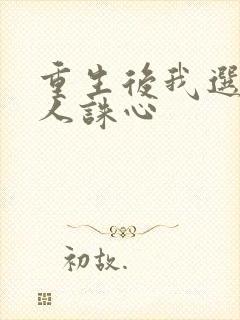 重生後我選
人誅心
初故.